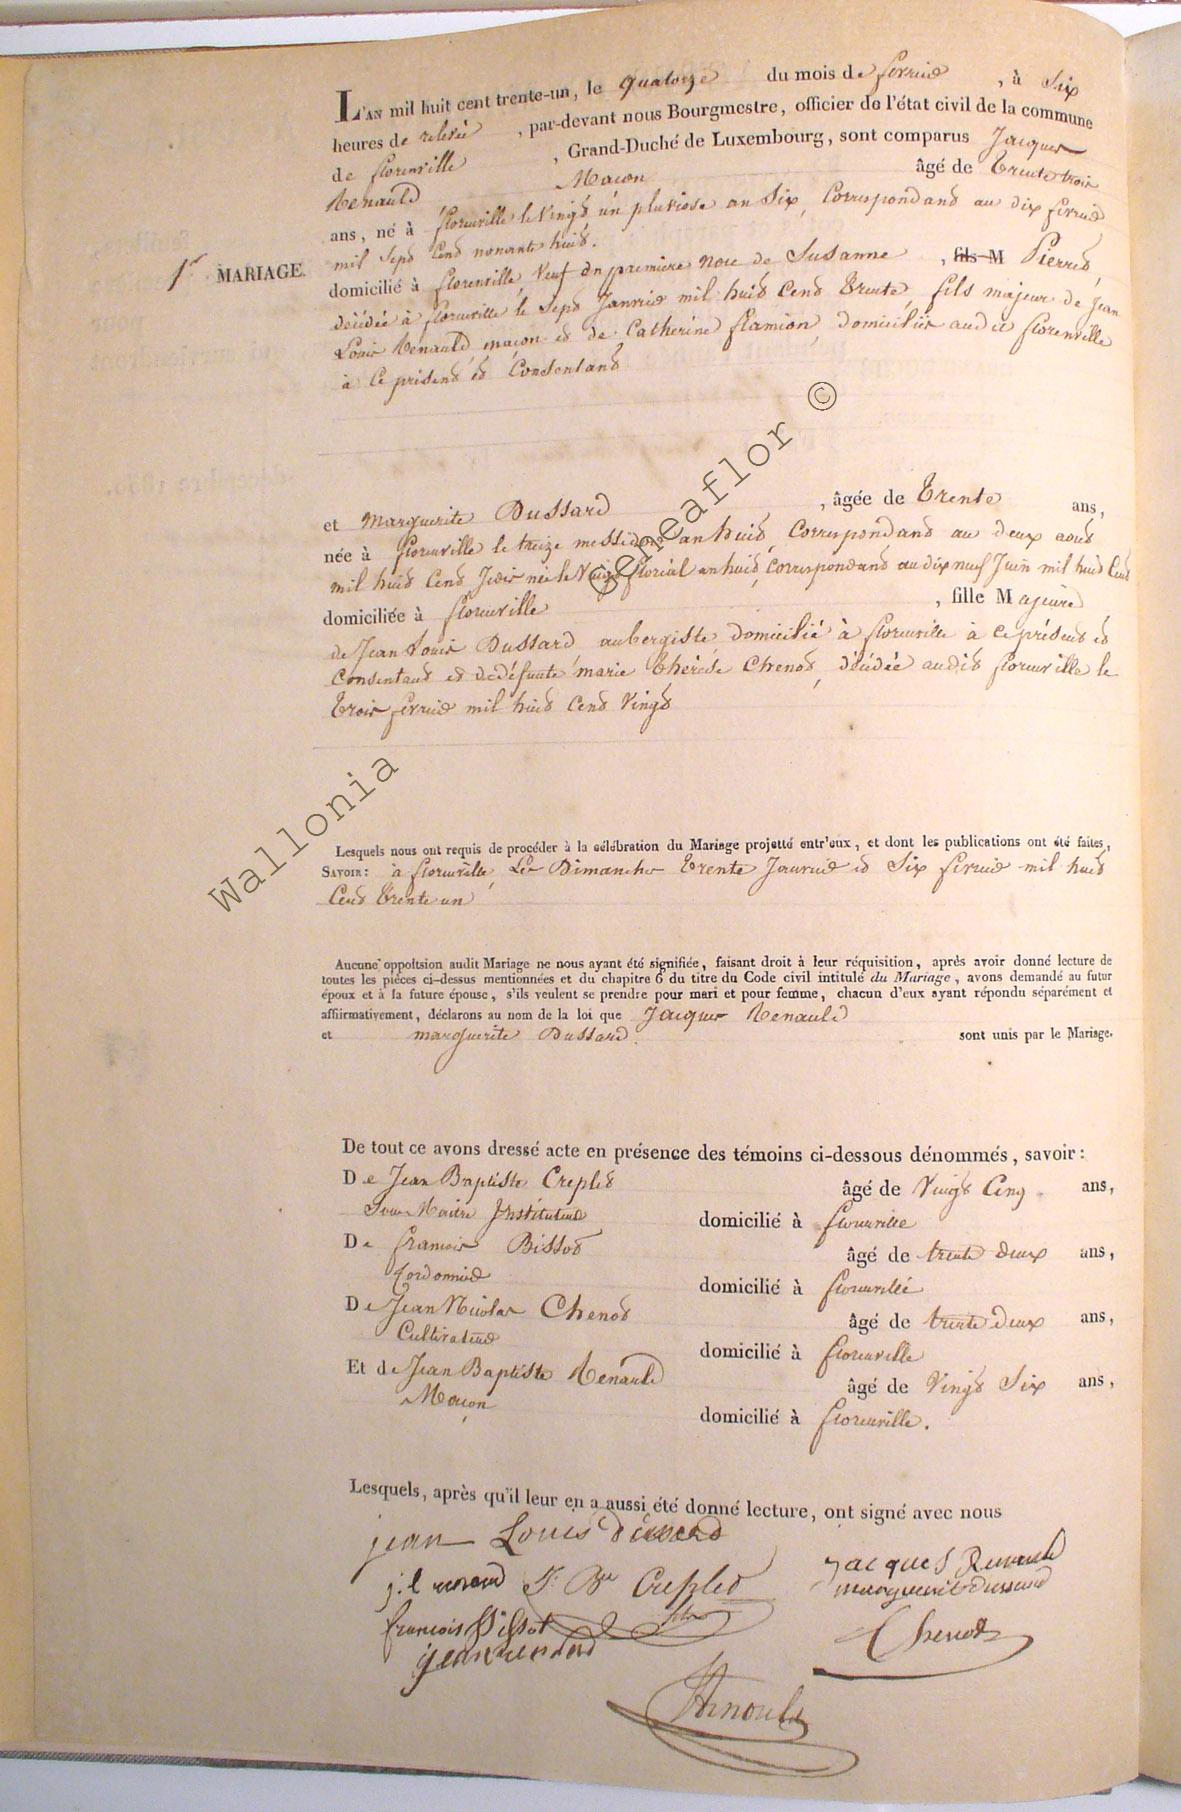 L'AN mil huit cent trente-un, le quatorze du mois de fevrier, à Six
heures de relevée, par-devant nous Bourgmestre, officier de l'état civil de la commune
de florenville, Grand-Duché de Luxembourg, sont comparus Jacques
Renauld Maçon âgé de trente trois
ans, né à florenville le vingt un pluviose an Six, Correspondant au dix fevrier
mil Sept Cent nonante huit.
1er MARIAGE.
domicilié à florenville, Veuf en premiere noce de Susanne, fils M Pierret,
décédée à florenville le Sept Janvier mil huit Cent trente, fils majeur de Jean
Louis Renauld maçon et de Catherine flamion, domiciliés audit florenville
à ce présent et Consentant
et Marguerite Dussard, âgée de trente ans,
née à florenville le treize messidor an huit, Correspondant au deux aout
mil huit Cent Jedis née le Vingt florial an huit, Correspondant au dix neuf Juin mil huit Cent
domiciliée à florenville, fille Majeure
de Jean Louis Dussard, aubergiste, domicilié à florenville à ce présent et
Consentant et de défunte marie thérèse Chenot, décédée audit florenville le
trois fevrier mil huit Cent vingt
Lesquels nous ont requis de procéder à la célébration du Mariage projetté entr'eux, et dont les publications ont été faites,
SAVOIR: à florenville, Les Dimanches trente Janvier et Six fevrier mil huit
Cent trente un
Aucune oppoitsion audit Mariage ne nous ayant été signifiée, faisant droit à leur réquisition, après avoir donné lecture de
toutes les pièces ci-dessus mentionnées et du chapitre 6 du titre du Code civil intitulé du Mariage, avons demandé au futur
époux et à la future épouse, s'ils veulent se prendre pour mari et pour femme, chacun d'eux ayant répondu séparément et
affirmativement, déclarons au nom de la loi que Jacques Renauld
et marguerite Dussard sont unis par le Mariage.
De tout ce avons dressé acte en présence des témoins ci-dessous dénommés, savoir:
De Jean Baptiste Creplet âgé de Vingt Cinq ans,
Sous Maitre Instituteur domicilié à florenville
De francois Bissot âgé de trente deux ans,
Cordonnier domicilié à florenville
De Jean Nicolas Chenot âgé de trente deux ans,
Cultivateur domicilié à florenville
Et de Jean Baptiste Renauld âgé de Vingt Six ans,
Maçon domicilié à florenville.
Lesquels, après qu'il leur en a aussi été donné lecture, ont signé avec nous
jean Louis dussard
jacques Renauld
j. l renaud J. Bte Creplet
marguerite dussard
francois Bissot
Chenot
jean renard
Arnould
Wallonia Geneaflor ©